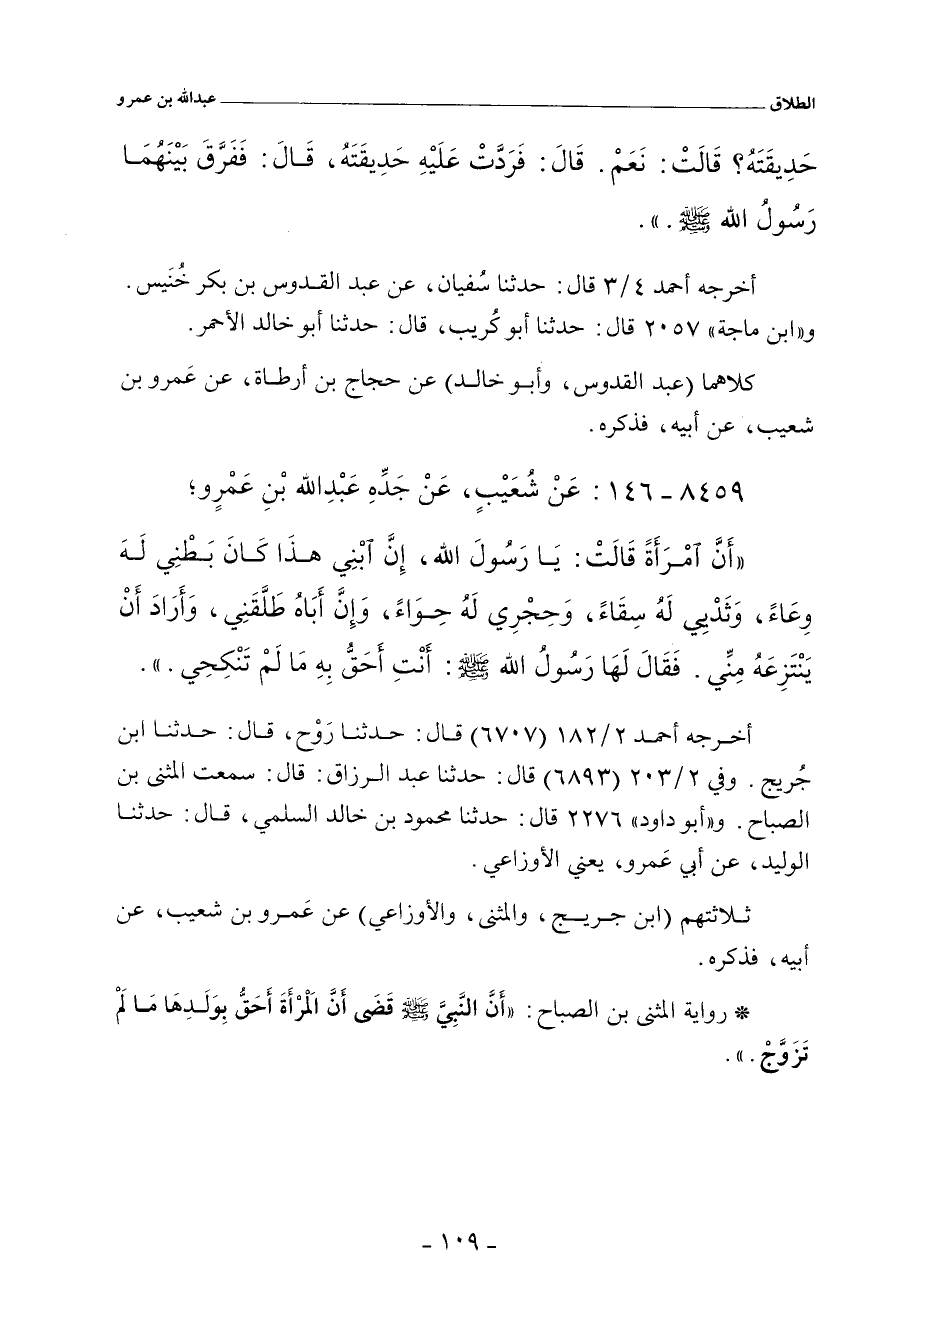 الطلاق ـــــــــــــــــــــــــــــــــــــــــ عبدالله بن عمرو
حَدِيقَتَهُ؟ قَالَتْ : نَعَمْ . قَالَ : فَرَدَّتْ عَلَيْهِ حَدِيقَتَهُ ، قَـالَ : فَفَرَّقَ بَيْنَهُمَـا
رَسُولُ الله ﷺ . » .
أخرجه أحمد ٣/٤ قال : حدثنا سُفيان ، عن عبد القـدوس بن بكر خُنَيس .
و«ابن ماجة» ٢٠٥٧ قال : حدثنا أبو كُريب ، قال : حدثنا أبو خالد الأحمر .
كلاهما (عبد القدوس ، وأبـو خالـد) عن حجاج بن أرطاة ، عن عَمرو بن
شعيب ، عن أبيه ، فذكره .
٨٤٥٩ ـ ١٤٦ : عَنْ شُعَيْبٍ ، عَنْ جَدِّهِ عَبْدِالله بْنِ عَمْرٍو ؛
«أَنَّ آمْـرَأَةً قَالَتْ : يَـا رَسُولَ الله ، إِنَّ آبْنِي هـذَا كَـانَ بَـطْنِي لَـهُ
وِعَاءً ، وَثَدْيِي لَهُ سِقَاءً ، وَحِجْرِي لَهُ حِـوَاءً ، وَإِنَّ أَبَاهُ طَلَّقَنِي ، وَأَرَادَ أَنْ
يَنْتَزِعَهُ مِنِّي . فَقَالَ لَهَا رَسُولُ الله ﷺ : أَنْتِ أَحَقُّ بِهِ مَا لَمْ تَنْكِحِي . » .
أخـرجه أحمـد ١٨٢/٢ (٦٧٠٧) قـال : حـدثنـا رَوْح ، قـال : حـدثنـا ابن
جُريج . وفي ٢٠٣/٢ (٦٨٩٣) قال : حدثنا عبد الـرزاق : قال : سمعت المثنى بن
الصباح . و«أبو داود» ٢٢٧٦ قال : حدثنا محمود بن خالد السلمي ، قـال : حدثنـا
الوليد ، عن أبي عَمرو ، يعني الأوزاعي .
ثـلاثتهم (ابن جـريـج ، والمثنى ، والأوزاعي) عن عَمـرو بن شعيب ، عن
أبيه ، فذكره .
* رواية المثنى بن الصباح : «أَنَّ النَّبِيَّ ﷺ قَضَى أَنَّ المَرْأَةَ أَحَقُّ بِوَلَـدِهَا مَـا لَمْ
تَزَوَّجْ . » .
- ١٠٩ -